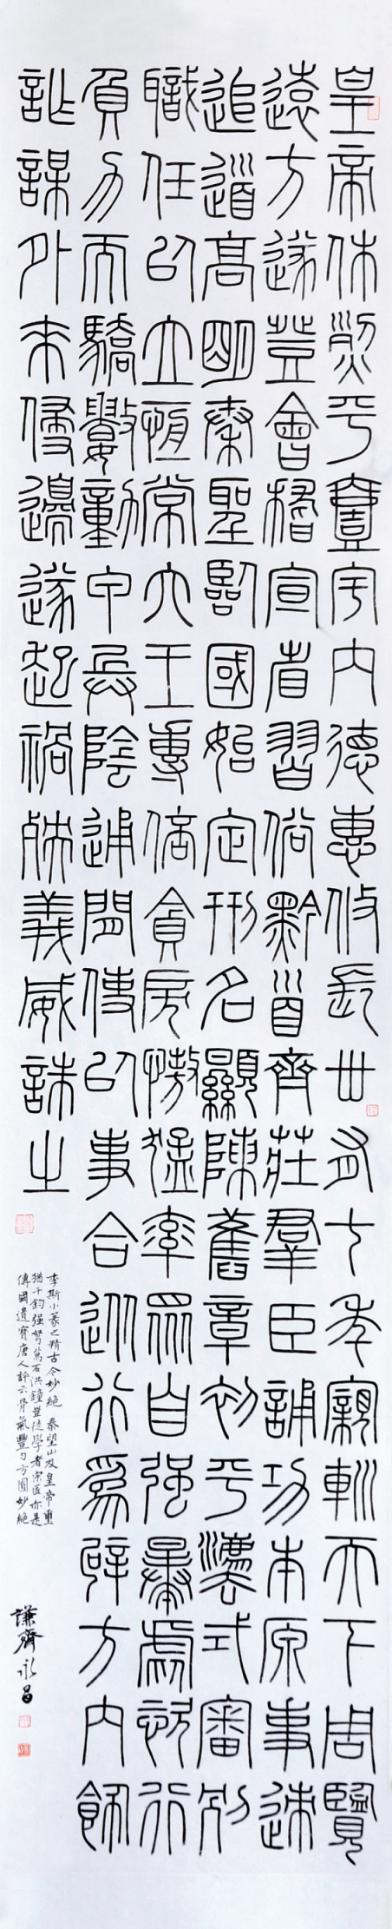 皇帝休烈平壹宇內德惠攸長卅有七年親䡅天下周覽
遠方遂登會稽宣省習俗黔首齊莊羣臣誦功本原事速
追道高明秦聖臨國始定刑名顯陳舊章初平灋式審別
職任以立恆常六王專倍貪戾慠猛率眾自強暴虐恣行
負力而驕數動甲兵陰通間使以事合從行為辟方內飾
詐謀外來侵邊遂起禍殃義威誅之
李斯小篆之精古今妙絕 秦望山及皇帝璽
猶千鈞强弩萬石洪鐘豈徒學者宗匠亦是
傳國遺寶唐人評云骨氣豐勻方圓妙絕
謙齋永昌